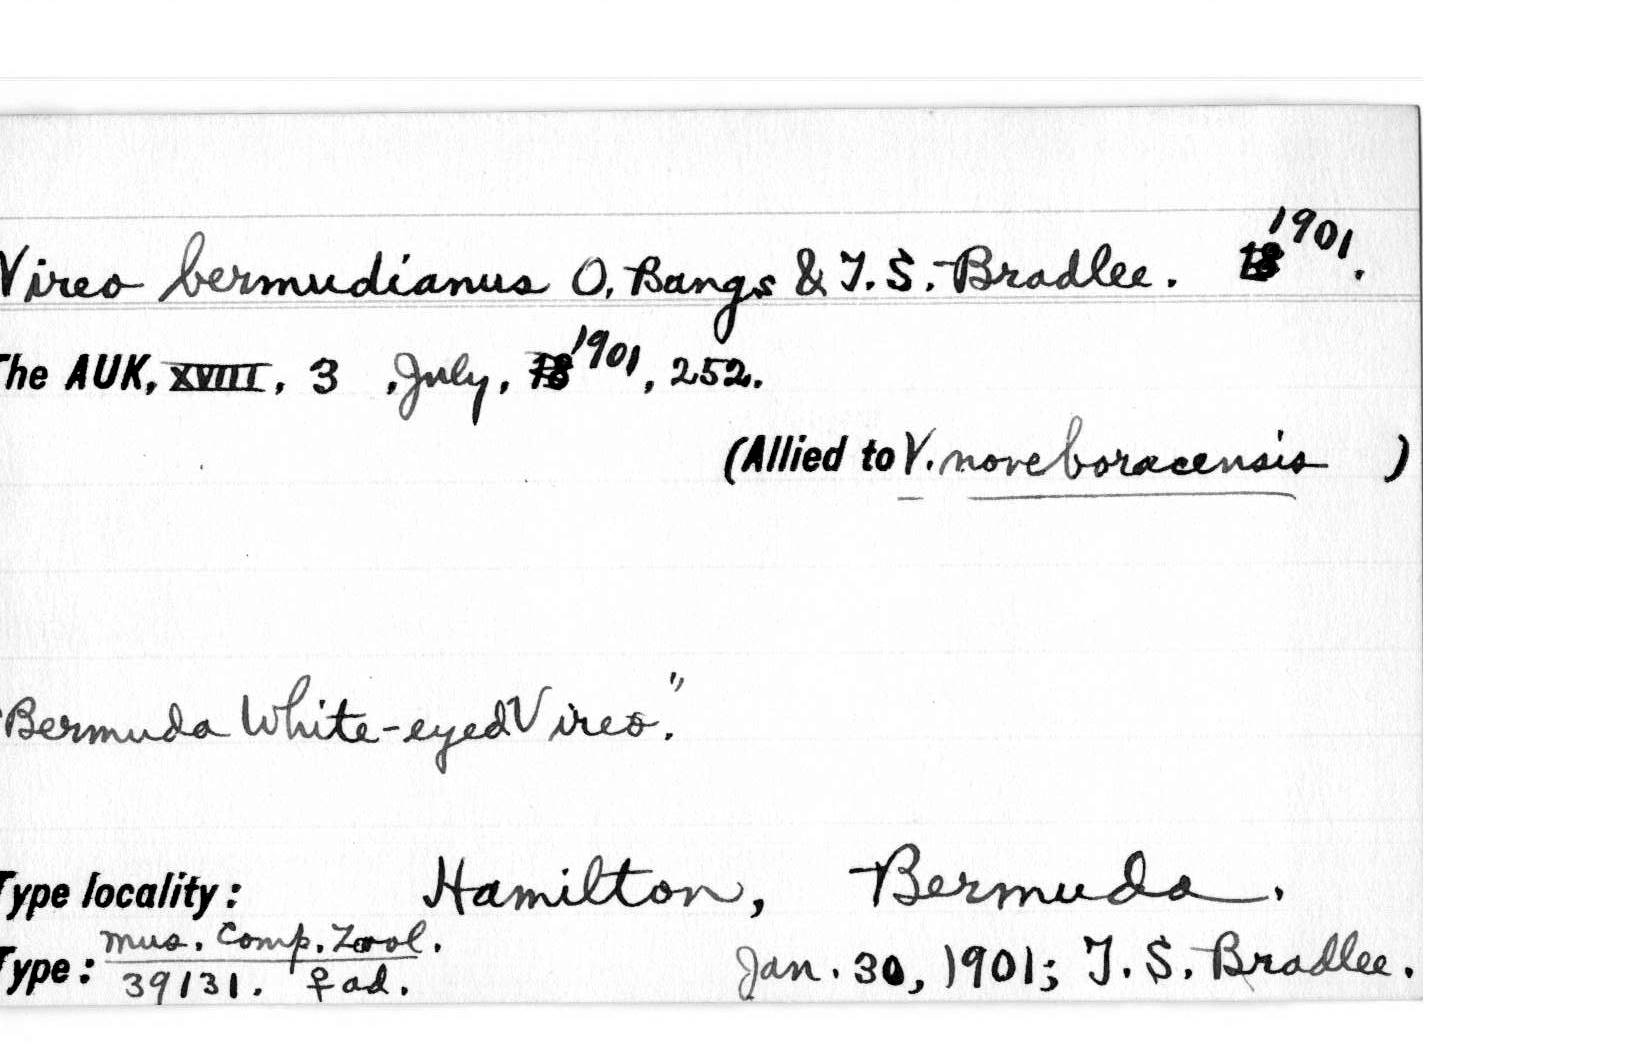 Vireo bermudianus O. Bangs & T. S. Bradlee. 1901.
The AUK, XVIII, 3, July, 1901, 252.
(Allied to V. noveboracensis)
"Bermuda White-eyed Vireo."
Type locality: Hamilton, Bermuda.
Type: Mus. Comp. Zool.
39131. ♀ ad. Jan. 30, 1901; T. S. Bradlee.